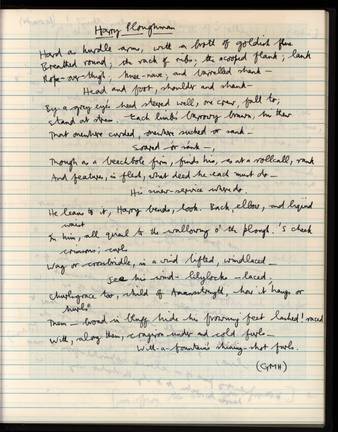 Harry Ploughman
Hard as hurdle arms, with a broth of goldish flue
Breathed round; the rack of ribs; the scooped flank; lank
Rope-over thigh; knee-nave; and barrelled shank —
Head and foot, shoulder and shank —
By a grey eye's heed steered well, one crew, fall to;
Stand at stress. Each limb's barrowy brawn, his thew
That onewhere curded, onewhere sucked or sank —
Soared or sank —,
Though as a beechbole firm, finds his, as at a rollcall, rank
And features, in flesh, what deed he each must do —
His sinew-service where do.
He leans to it, Harry bends, look. Back, elbow, and liquid
waist
In him, all quail to the wallowing o' the plough. 's cheek
crimsons; curls
Wag or crossbridle, in a wind lifted, windlaced —
See his wind- lilylocks -laced;
Churlsgrace too, child of Amansstrength, how it hangs or
hurls
Them — broad in bluff hide his frowning feet lashed! raced
With, along them, cragiron under and cold furls —
With-a-fountain's shining-shot furls.
(GMH)